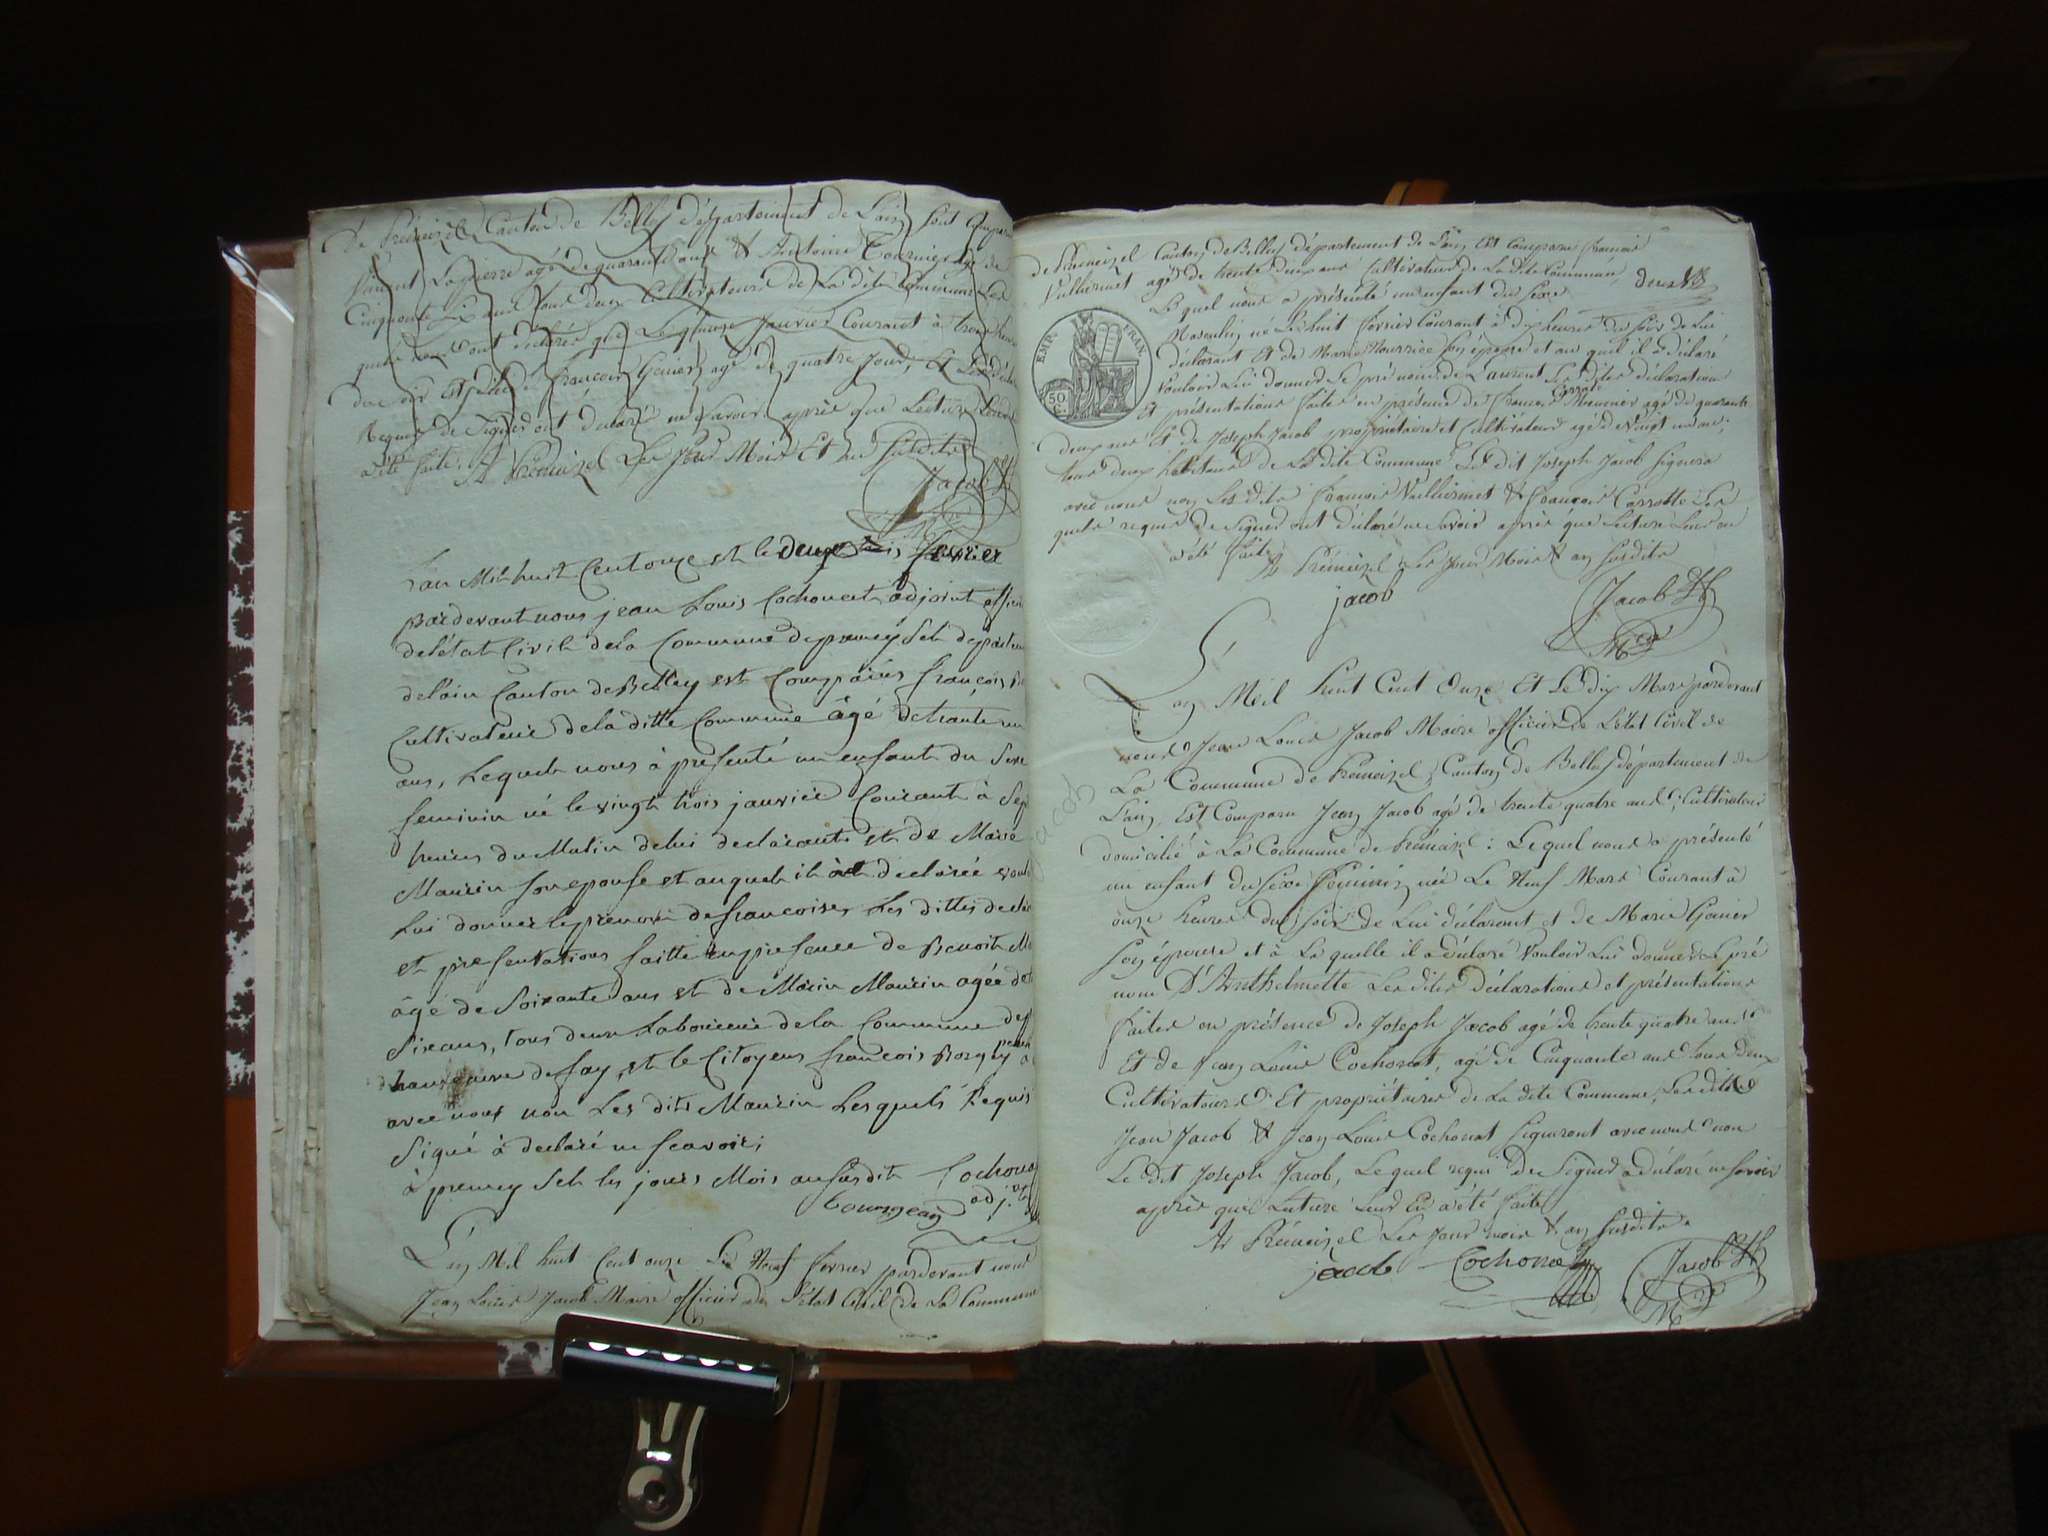 de Prémeizel Canton de Belley département de L'ain sont Comparu
Laurent Lapierre agé de quarante ans & Antoine Tournier agé de
Cinquante six ans tous deux Cultivateurs de La dite Commune Les
quels nous ont déclaré que Le quinze Janvier Courant à trois heures
du soir Est décédé françois Ganier agé de quatre jours, Et Les décla
Requis de Signer ont déclaré ne savoir après que Lecture Leur en
a été faite. A Prémeizel Les Jour Mois Et an susdits
Jacob
Mre
L'an Mil huit Cent onze et le deuxe fevrier
Pardevant nous jean Louis Cochonat adjoint officier
de létat Civil dela Commune de premey Sel departem
delain Canton de Belley est Comparus françois
Cultivateur de la ditte Commune âgé de trante un
ans, Lequel nous à présenté un enfant du Sexe
feminin né le vingt trois janvier Courant à Sept
heures du Matin de lui declarant et de Marie
Maurin son epouse et auquel il à declarée voul
Lui donner le prenom de francoise, Les dittes decla
et présentations faitte en présence de Benoit M
âgé de Soixante ans et de Marin Maurin agée de
Sixans, tous deux Laboureur de la Commune de
avec nous non Les dits Maurin Lesquels Requis
Signé à declaré ne scavoir;
à premey Sel les jours Mois an susdit Cochonat
bourgeay adj.
L'an Mil huit Cent onze Le Neuf fevrier pardevant nous
Jean Louis Jacob Maire officier de L'état Civil de La Commune
de Prémeizel Canton de Belley département de L'ain Est Comparu françois
Vulliermet agé de trente deux ans Cultivateur de La dite Commune,
Le quel nous a présenté un enfant du Sexe
EMP. FRAN.
50 C.
Masculin né Le huit fevrier Courant à dix heures du Soir de Lui
déclarant Et de Marie Nourrice son épouse et au quel il a déclaré
Vouloir Lui donner Le prénom de Laurent Les dites déclaration
Et présentations faites en présence de françois Carrotte Meunier agé de quarante
deux ans Et de Joseph Jacob propriétaire et Cultivateur agé de Vingt un ans;
tous deux habitans de La dite Commune Le dit Joseph Jacob Signera
avec nous non Les dits françois Vulliermet & françois Carrotte Les
quels requis de Signer ont déclaré ne Savoir après que Lecture Leur en
a été faite
A Prémeizel Les Jour Mois & an susdits
jacob Jacob
Mre
L'an Mil huit Cent Onze Et Le dix Mars pardevant
nous Jean Louis Jacob Maire officier de L'état Civil de
La Commune de Prémeizel Canton de Belley département de
L'ain, Est Comparu Jean Jacob agé de trente quatre ans, Cultivateur
domicilié à La Commune de Prémeizel: Lequel nous a présenté
un enfant du Sexe féminin née Le Neuf Mars Courant à
onze heures du Soir de Lui déclarant et de Marie Ganier
Son épouse et à La quelle il a déclaré Vouloir Lui donner Le pré
nom D'Anthelmette Les dites déclarations et présentations
faites en présence de Joseph Jacob agé de trente quatre ans
Et de Jean Louis Cochonat, agé de Cinquante ans tous deux
Cultivateurs Et propriétaires de La dite Commune, Les dits
Jean Jacob & Jean Louis Cochonat signeront avec nous non
Le dit Joseph Jacob, Lequel requis de Signer a déclaré ne Savoir
après que Lecture Leur En a été faite
A Prémeizel Les Jour mois & an susdits
jacob Cochonat Jacob
Mre